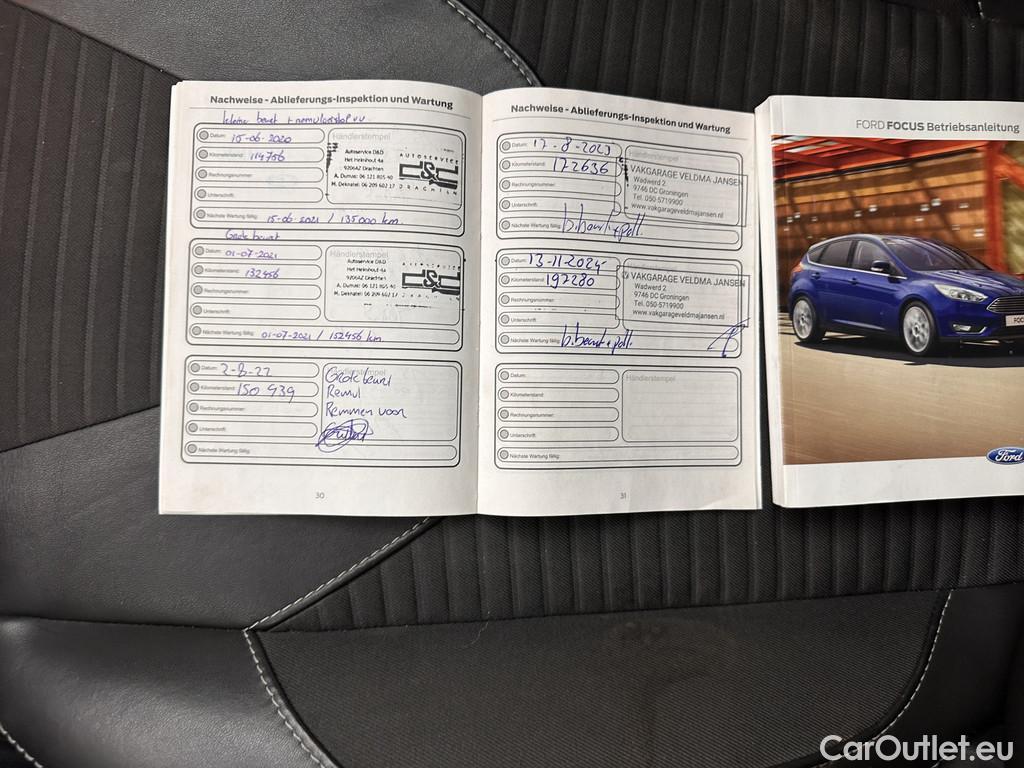 Nachweise - Ablieferungs-Inspektion und Wartung
kleine beurt +
Datum: 15-06-2020
Händlerstempel
Kilometerstand: 114756
Rechnungsnummer:
Unterschrift:
Nächste Wartung fällig: 15-06-2021 / 135000 km.
Autoservice D&D
Het Helmhout 4a
9206AZ Drachten
A. Dumas: 06 121 805 40
M. Deknatel: 06 209 602 17
AUTOSERVICE
d&d
DRACHTEN
Grote beurt
Datum: 01-07-2021
Händlerstempel
Kilometerstand: 132456
Rechnungsnummer:
Unterschrift:
Nächste Wartung fällig: 01-07-2021 / 152456 km
Autoservice D&D
Het Helmhout 4a
9206AZ Drachten
A. Dumas: 06 121 805 40
M. Deknatel: 06 209 602 17
d&d
Datum: 2-8-22
Händlerstempel
Kilometerstand: 150 939
Rechnungsnummer:
Unterschrift:
Nächste Wartung fällig:
Grote beurt
Remmen voor
30
Nachweise - Ablieferungs-Inspektion und Wartung
Datum: 17-8-2023
Händlerstempel
Kilometerstand: 172636
Rechnungsnummer:
Unterschrift:
Nächste Wartung fällig: b.beurt + poll.
VAKGARAGE VELDMA JANSEN
Wadwerd 2
9746 DC Groningen
Tel. 050-5719900
www.vakgarageveldmajansen.nl
Datum: 13-11-2024
Kilometerstand: 192280
Rechnungsnummer:
Unterschrift:
Nächste Wartung fällig: b.beurt + poll.
VAKGARAGE VELDMA JANSEN
Wadwerd 2
9746 DC Groningen
Tel. 050-5719900
www.vakgarageveldmajansen.nl
Datum:
Händlerstempel
Kilometerstand:
Rechnungsnummer:
Unterschrift:
Nächste Wartung fällig:
31
FORD FOCUS Betriebsanleitung
Ford
CarOutlet.eu